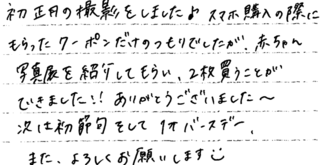 初正月の撮影をしました♪ スマホ購入の際に
もらったクーポンだけのつもりでしたが、赤ちゃん
写真展を紹介してもらい、2枚買うことが
できました!! ありがとうございました〜
次は初節句そして1才バースデー、
また、よろしくお願いします☺